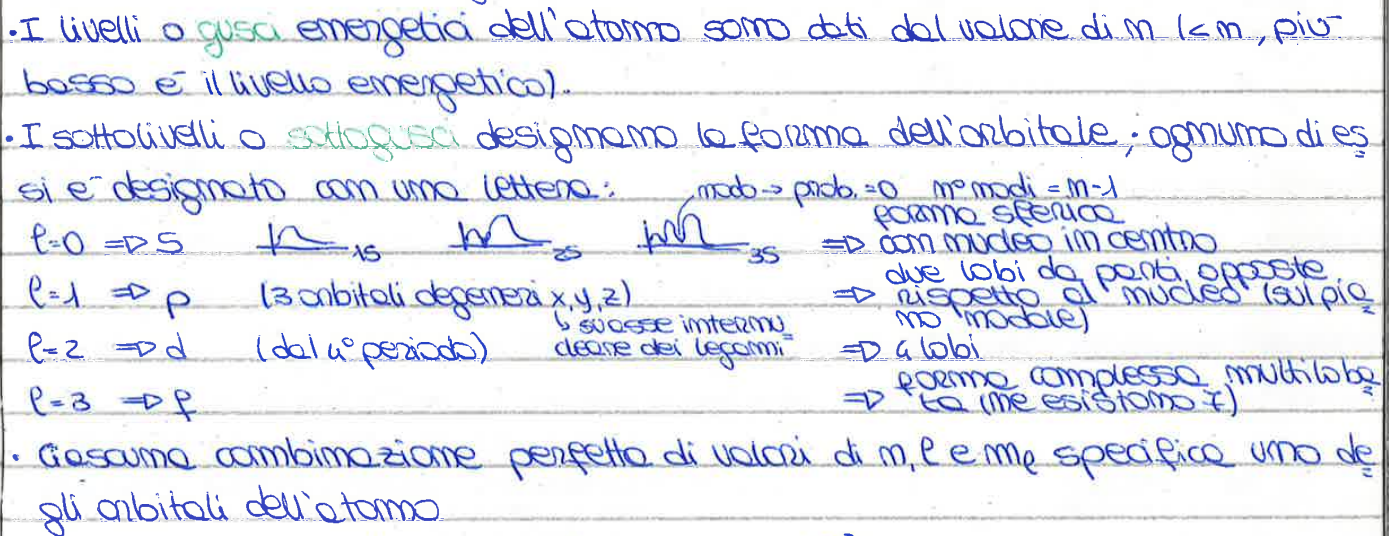 ·I livelli o gusci energetici dell'atomo sono dati dal valore di n (<n, più
basso è il livello energetico).
·I sottolivelli o sottogusci designano la forma dell'orbitale; ognuno di es
si è designato con una lettera: nodo → prob. = 0 n° nodi = n-1
l=0 => s 1s 2s 3s => forma sferica con nucleo in centro
l=1 => p (3 orbitali degeneri x, y, z) => due lobi da parti opposte rispetto al nucleo (sul pia
no nodale)
↳ su asse internu
cleare dei legami
l=2 => d (dal 4° periodo) => 4 lobi
l=3 => f => forma complessa multiloba
ta (ne esistono 7)
· Ciascuna combinazione perfetta di valori di n, l e ml specifica uno de
gli orbitali dell'atomo